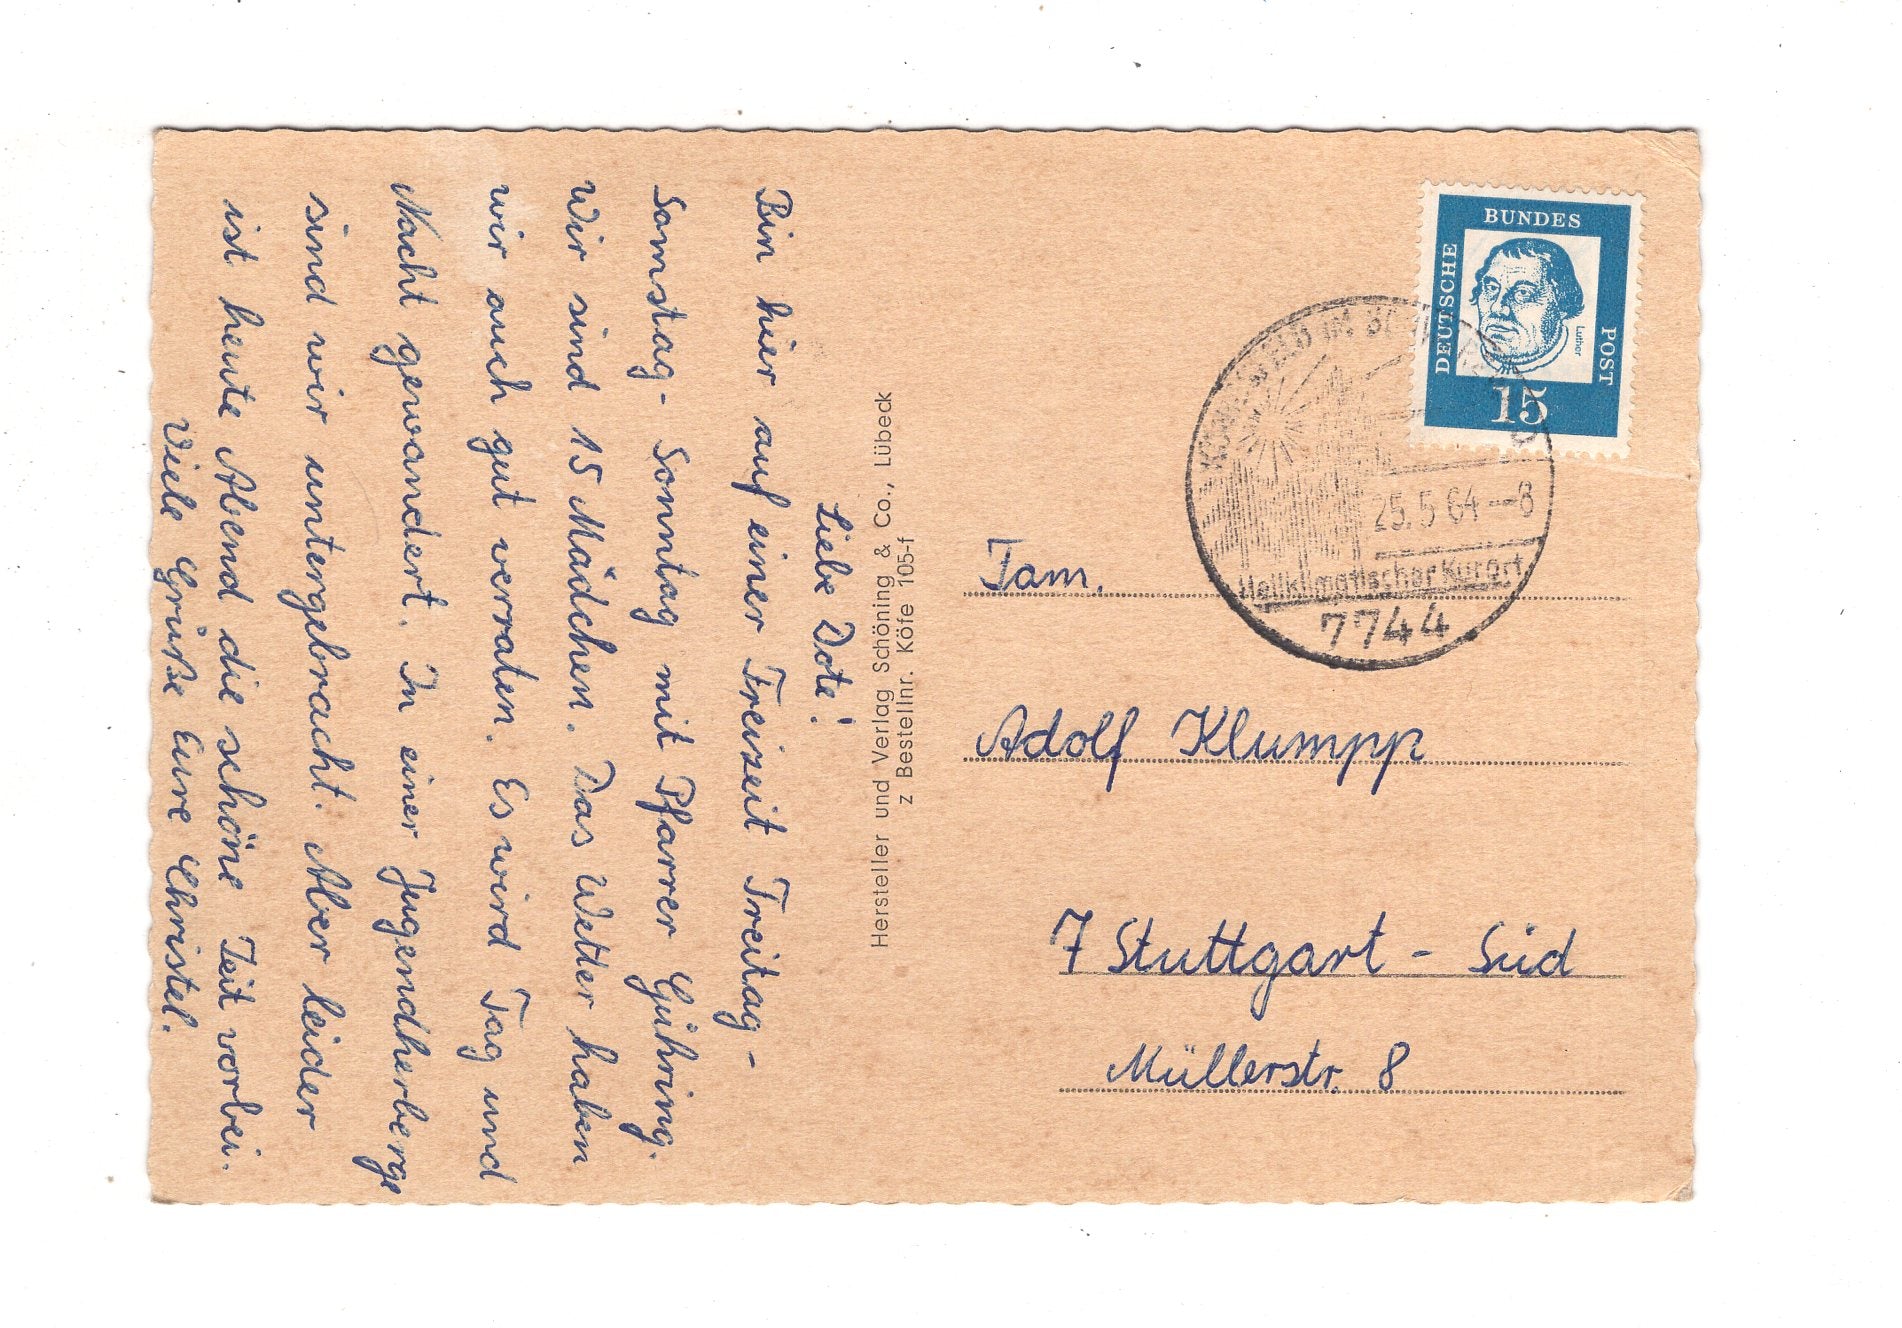 Liebe Dote!
Bin hier auf einer Freizeit Freitag-
Samstag- Sonntag mit Pfarrer Gühring.
Wir sind 15 Mädchen. Das Wetter haben
wir auch gut verraten. Es wird Tag und
Nacht gewandert. In einer Jugendherberge
sind wir untergebracht. Aber leider
ist heute Abend die schöne Zeit vorbei.
Viele Grüße Eure Christel.
Hersteller und Verlag Schöning & Co., Lübeck
z Bestellnr. Köfe 105-f
DEUTSCHE
BUNDES
POST
Luther
15
KÖNIGSFELD IM SCHWARZWALD
25.5.64--8
Heilklimatischer Kurort
7744
Fam.
Adolf Klumpp
7 Stuttgart - Süd
Müllerstr. 8